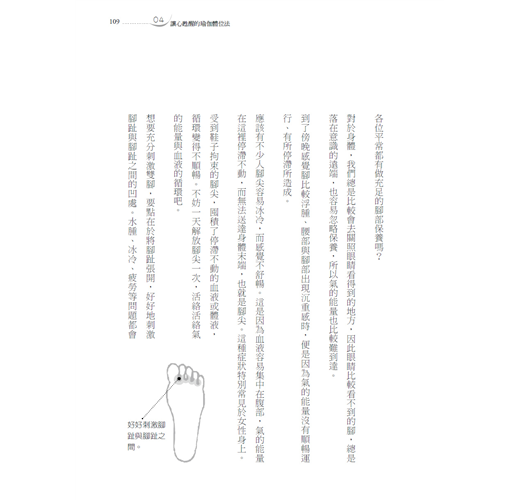 109
04
讓心甦醒的瑜伽體位法
各位平常都有做充足的腳部保養嗎？
對於身體，我們總是比較會去關照眼睛看得到的地方，因此眼睛比較看不到的腳，總是
落在意識的遠端，也容易忽略保養，所以氣的能量也比較難到達。
到了傍晚感覺腳比較浮腫、腰部與腳部出現沉重感時，便是因為氣的能量沒有順暢運
行、有所停滯所造成。
應該有不少人腳尖容易冰冷，而感覺不舒暢。這是因為血液容易集中在腹部，氣的能量
在這裡停滯不動，而無法送達身體末端，也就是腳尖。這種症狀特別常見於女性身上。
受到鞋子拘束的腳尖，囤積了停滯不動的血液或體液，
循環變得不順暢。不妨一天解放腳尖一次，活絡活絡氣
的能量與血液的循環吧。
想要充分刺激雙腳，要點在於將腳趾張開，好好地刺激
腳趾與腳趾之間的凹處。水腫、冰冷、疲勞等問題都會
好好刺激腳
趾與腳趾之
間。